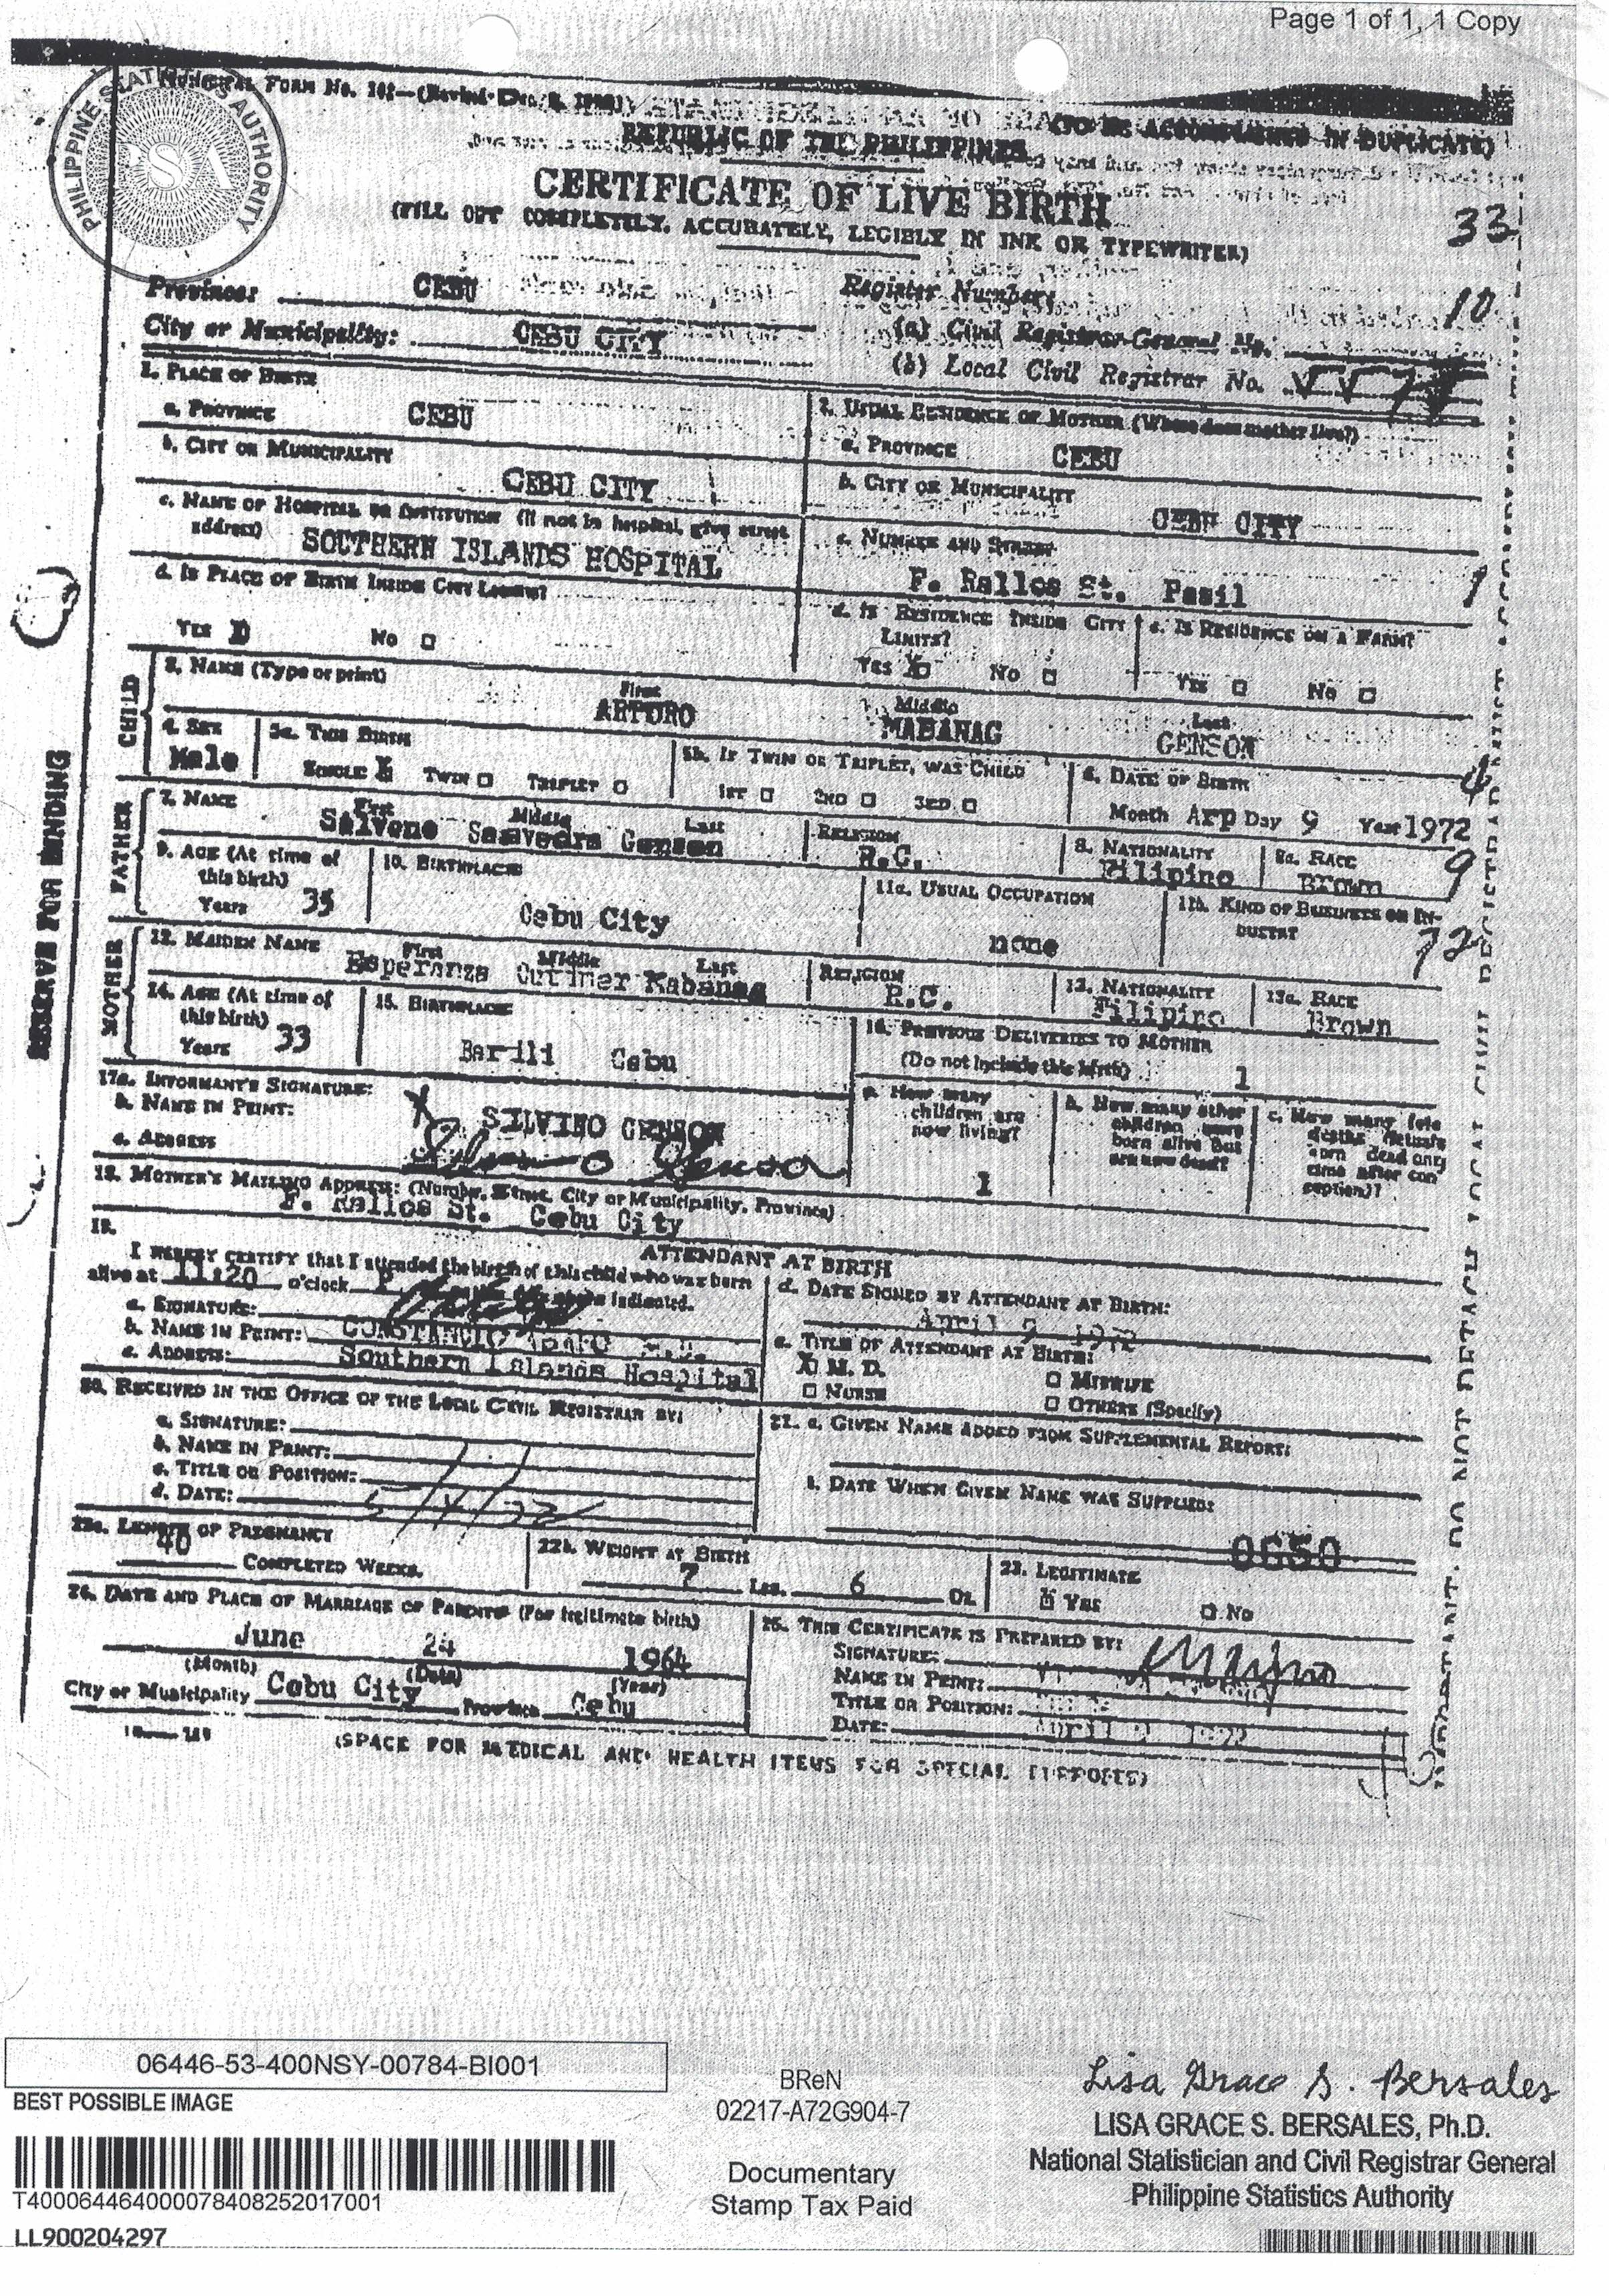 Page 1 of 1, 1 Copy
PHILIPPINE STATISTICS AUTHORITY
PSA
MUNICIPAL FORM No. 102—(Revised
(TO BE ACCOMPLISHED IN DUPLICATE)
REPUBLIC OF THE PHILIPPINES
CERTIFICATE OF LIVE BIRTH
(FILL OUT COMPLETELY, ACCURATELY, LEGIBLY IN INK OR TYPEWRITER)
33
Province: CEBU
Register Number:
10
City or Municipality: CEBU CITY
(a) Civil Registrar-General No.
(b) Local Civil Registrar No.
1. PLACE OF BIRTH
2. USUAL RESIDENCE OF MOTHER (Where does mother live?)
a. PROVINCE CEBU
a. PROVINCE CEBU
b. CITY OR MUNICIPALITY CEBU CITY
b. CITY OR MUNICIPALITY CEBU CITY
c. NAME OF HOSPITAL OR INSTITUTION (If not in hospital, give street address) SOUTHERN ISLANDS HOSPITAL
c. NUMBER AND STREET
F. Rallos St. Pasil
1
d. IS PLACE OF BIRTH INSIDE CITY LIMITS?
YES NO
d. IS RESIDENCE INSIDE CITY LIMITS?
YES X NO
e. IS RESIDENCE ON A FARM?
YES NO
CHILD
3. NAME (Type or print)
First Middle Last
ARTURO MABANAG GENSON
4. SEX
Male
5a. THIS BIRTH
SINGLE X TWIN TRIPLET
5b. IF TWIN OR TRIPLET, WAS CHILD
1ST 2ND 3RD
6. DATE OF BIRTH
Month Arp Day 9 Year 1972
4
FATHER
7. NAME
First Middle Last
Salveno Saavedra Genson
RELIGION
R.C.
8. NATIONALITY
Filipino
8a. RACE
Brown
9
9. AGE (At time of this birth)
Years 35
10. BIRTHPLACE
Cebu City
11a. USUAL OCCUPATION
none
11b. KIND OF BUSINESS OR INDUSTRY
72
MOTHER
12. MAIDEN NAME
First Middle Last
Esperanza Kabanag
RELIGION
R.C.
13. NATIONALITY
Filipino
13a. RACE
Brown
14. AGE (At time of this birth)
Years 33
15. BIRTHPLACE
Barili Cebu
16. PREVIOUS DELIVERIES TO MOTHER
(Do not include this birth) 1
a. How many children are now living?
1
b. How many other children were born alive but are now dead?
c. How many fetal deaths
17a. INFORMANT'S SIGNATURE:
b. NAME IN PRINT: SILVINO GENSON
c. ADDRESS
18. MOTHER'S MAILING ADDRESS: (Number, Street, City or Municipality, Province)
F. Rallos St. Cebu City
19. ATTENDANT AT BIRTH
I HEREBY CERTIFY that I attended the birth of this child who was born
alive at 11:20 o'clock P indicated.
a. SIGNATURE:
b. NAME IN PRINT: CONSTANCIO M.D.
c. ADDRESS: Southern Islands Hospital
d. DATE SIGNED BY ATTENDANT AT BIRTH:
April 9 1972
e. TITLE OF ATTENDANT AT BIRTH:
X M. D. MIDWIFE
NURSE OTHERS (Specify)
20. RECEIVED IN THE OFFICE OF THE LOCAL CIVIL REGISTRAR BY:
a. SIGNATURE:
b. NAME IN PRINT:
c. TITLE OR POSITION:
d. DATE: 5/4/72
21. a. GIVEN NAME ADDED FROM SUPPLEMENTAL REPORT:
b. DATE WHEN GIVEN NAME WAS SUPPLIED:
0650
22a. LENGTH OF PREGNANCY
40 COMPLETED WEEKS.
22b. WEIGHT AT BIRTH
7 LBS. 6 OZ.
23. LEGITIMATE
X YES NO
24. DATE AND PLACE OF MARRIAGE OF PARENTS (For legitimate birth)
June 24 1964
(Month) (Date) (Year)
City or Municipality Cebu City Province Cebu
25. THIS CERTIFICATE IS PREPARED BY:
SIGNATURE:
NAME IN PRINT:
TITLE OR POSITION:
DATE: April 1972
(SPACE FOR MEDICAL AND HEALTH ITEMS FOR SPECIAL PURPOSES)
RESERVE FOR BINDING
IMPORTANT: DO NOT DETACH LOCAL CIVIL REGISTRAR
06446-53-400NSY-00784-BI001
BEST POSSIBLE IMAGE
T400064464000078408252017001
LL900204297
BReN
02217-A72G904-7
Documentary
Stamp Tax Paid
Lisa Grace S. Bersales
LISA GRACE S. BERSALES, Ph.D.
National Statistician and Civil Registrar General
Philippine Statistics Authority